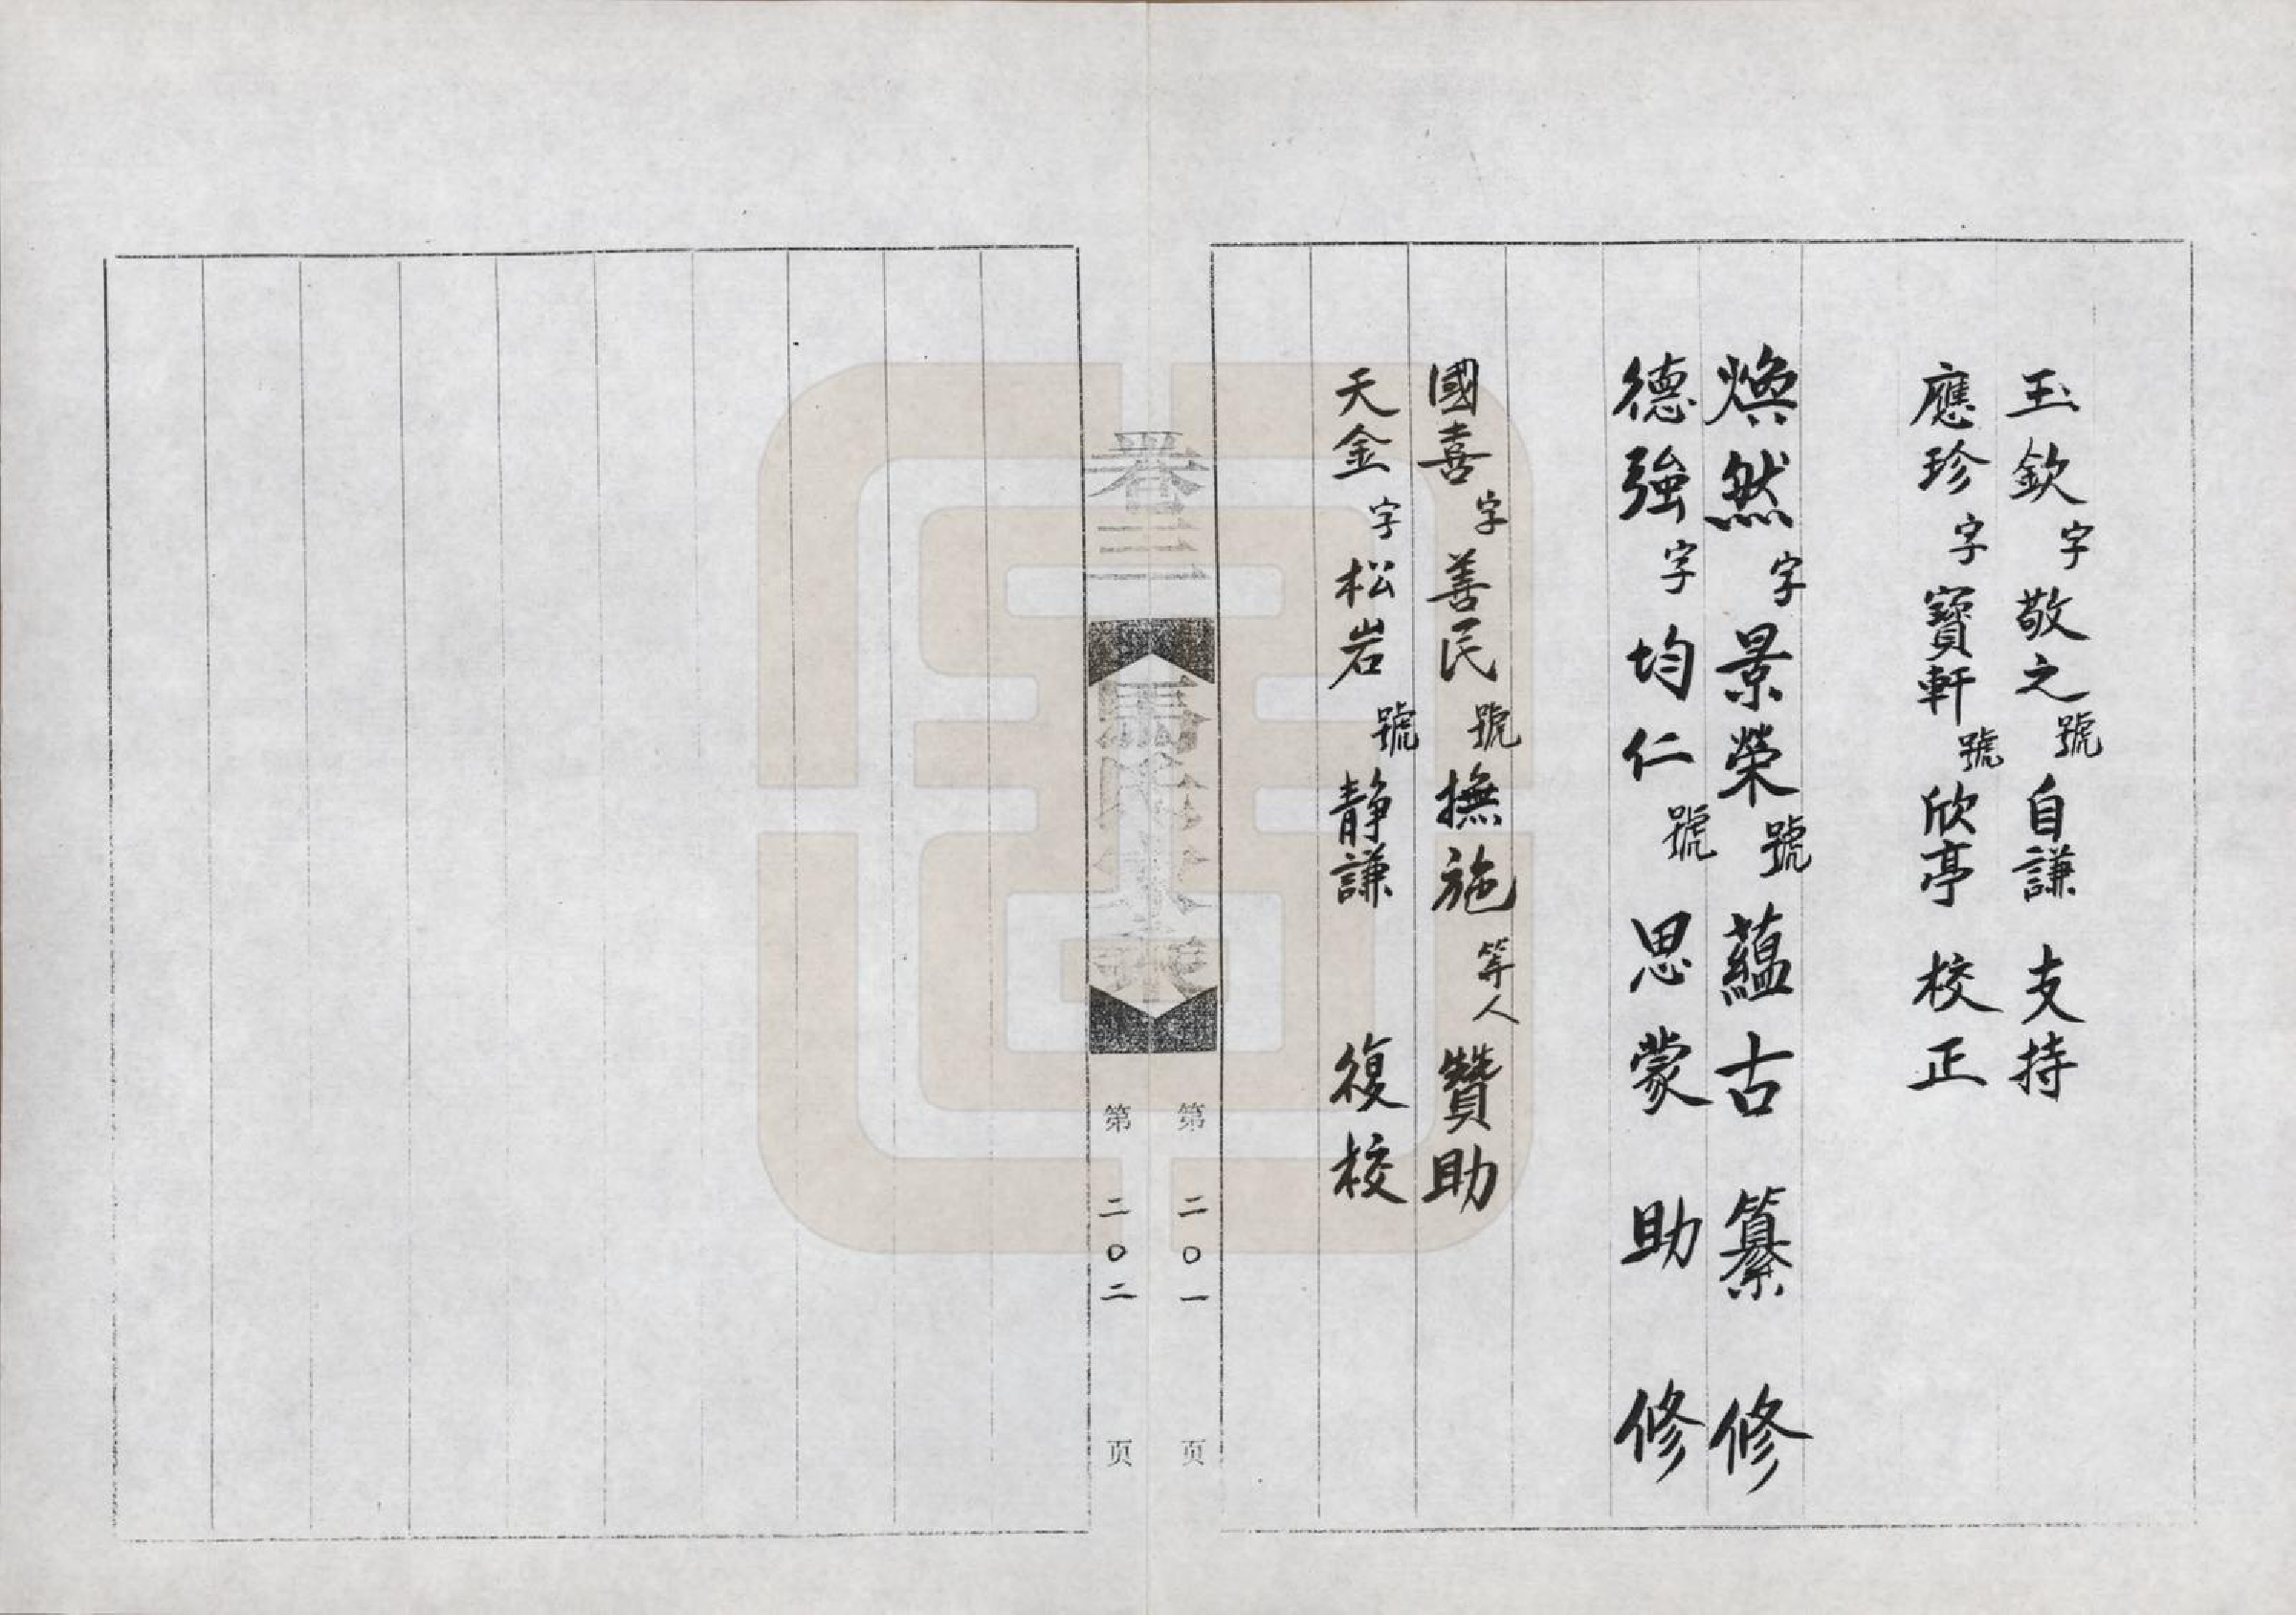 玉欽字敬之號自謙 支持
應珍字寶軒號欣亭 校正
煥然字景榮號蘊古 纂修
德強字均仁號思蒙 助修
國喜字善民號撫施等人 贊助
天金字松岩號静謙 復校
卷三
馬氏家乘
第二〇一页
第二〇二页